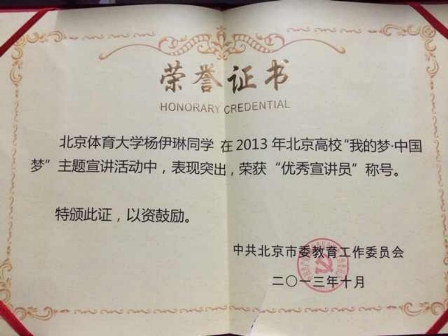 荣誉证书
HONORARY CREDENTIAL
北京体育大学杨伊琳同学 在 2013 年北京高校“我的梦·中国
梦”主题宣讲活动中，表现突出，荣获 “优秀宣讲员” 称号。
特颁此证，以资鼓励。
中共北京市委教育工作委员会
二〇一三年十月